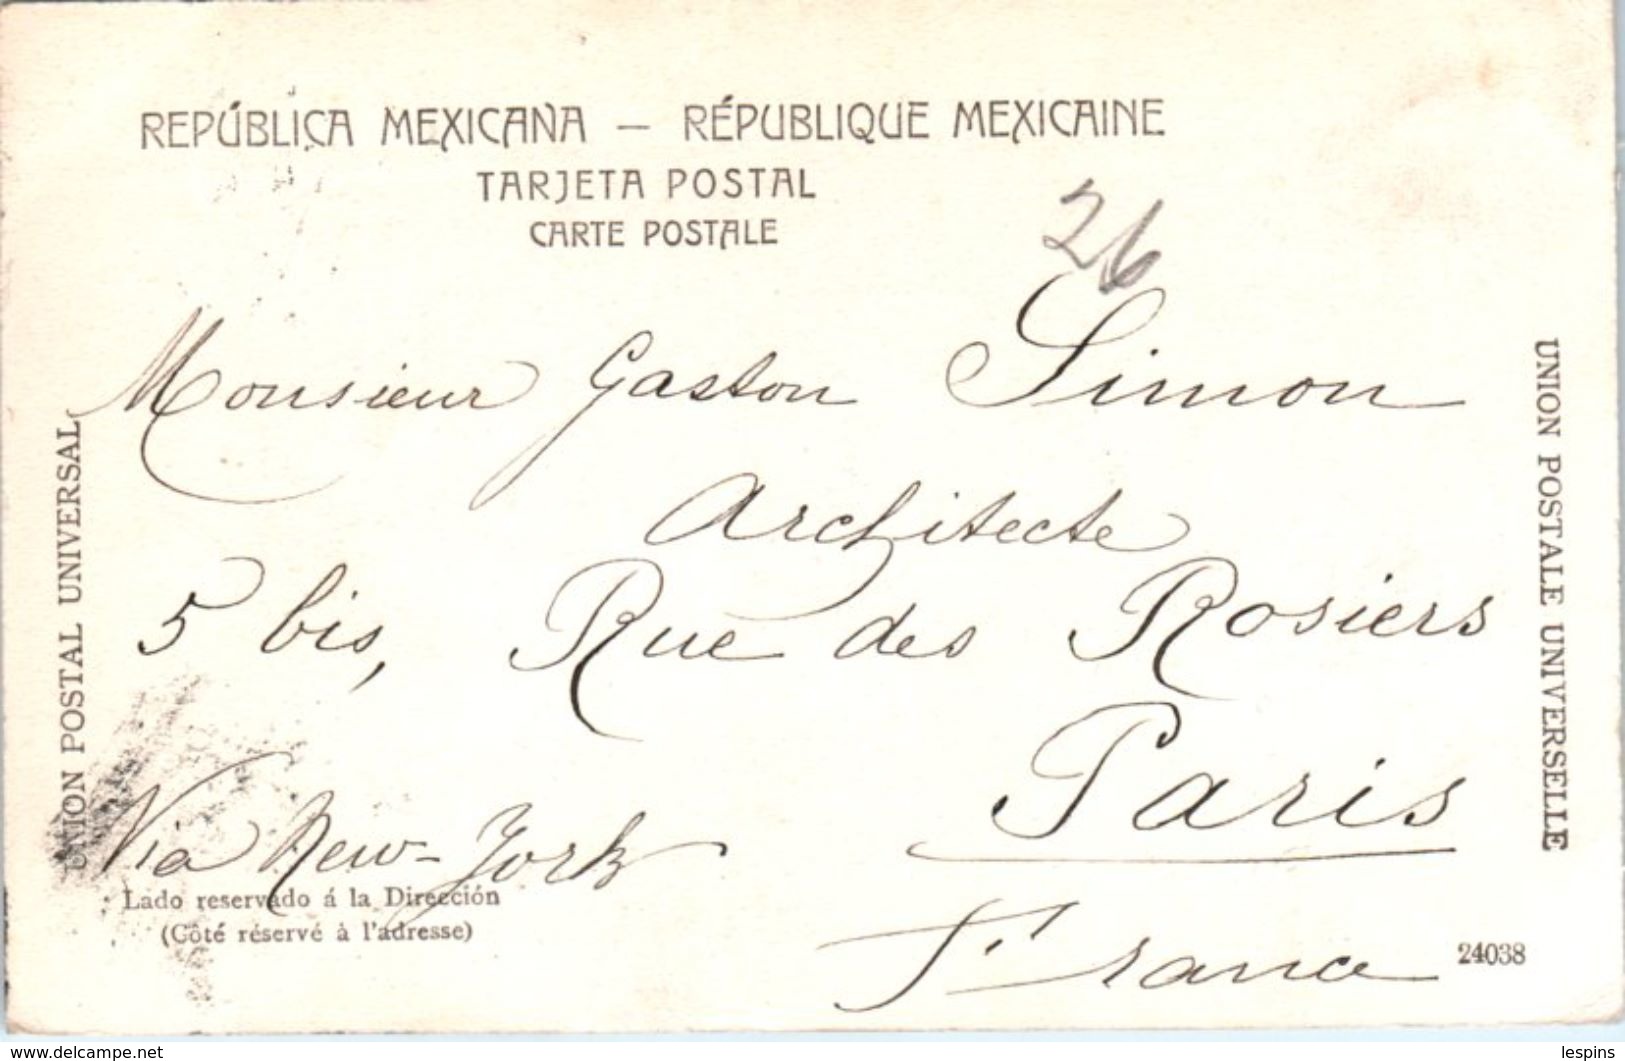 REPÚBLICA MEXICANA — RÉPUBLIQUE MEXICAINE
TARJETA POSTAL
CARTE POSTALE
26
Monsieur Gaston Simon
Architecte
5 bis, Rue des Rosiers
Paris
Via New-York
France
Lado reservado á la Dirección
(Côté réservé à l'adresse)
24038
UNION POSTAL UNIVERSAL
UNION POSTALE UNIVERSELLE
www.delcampe.net
lespins